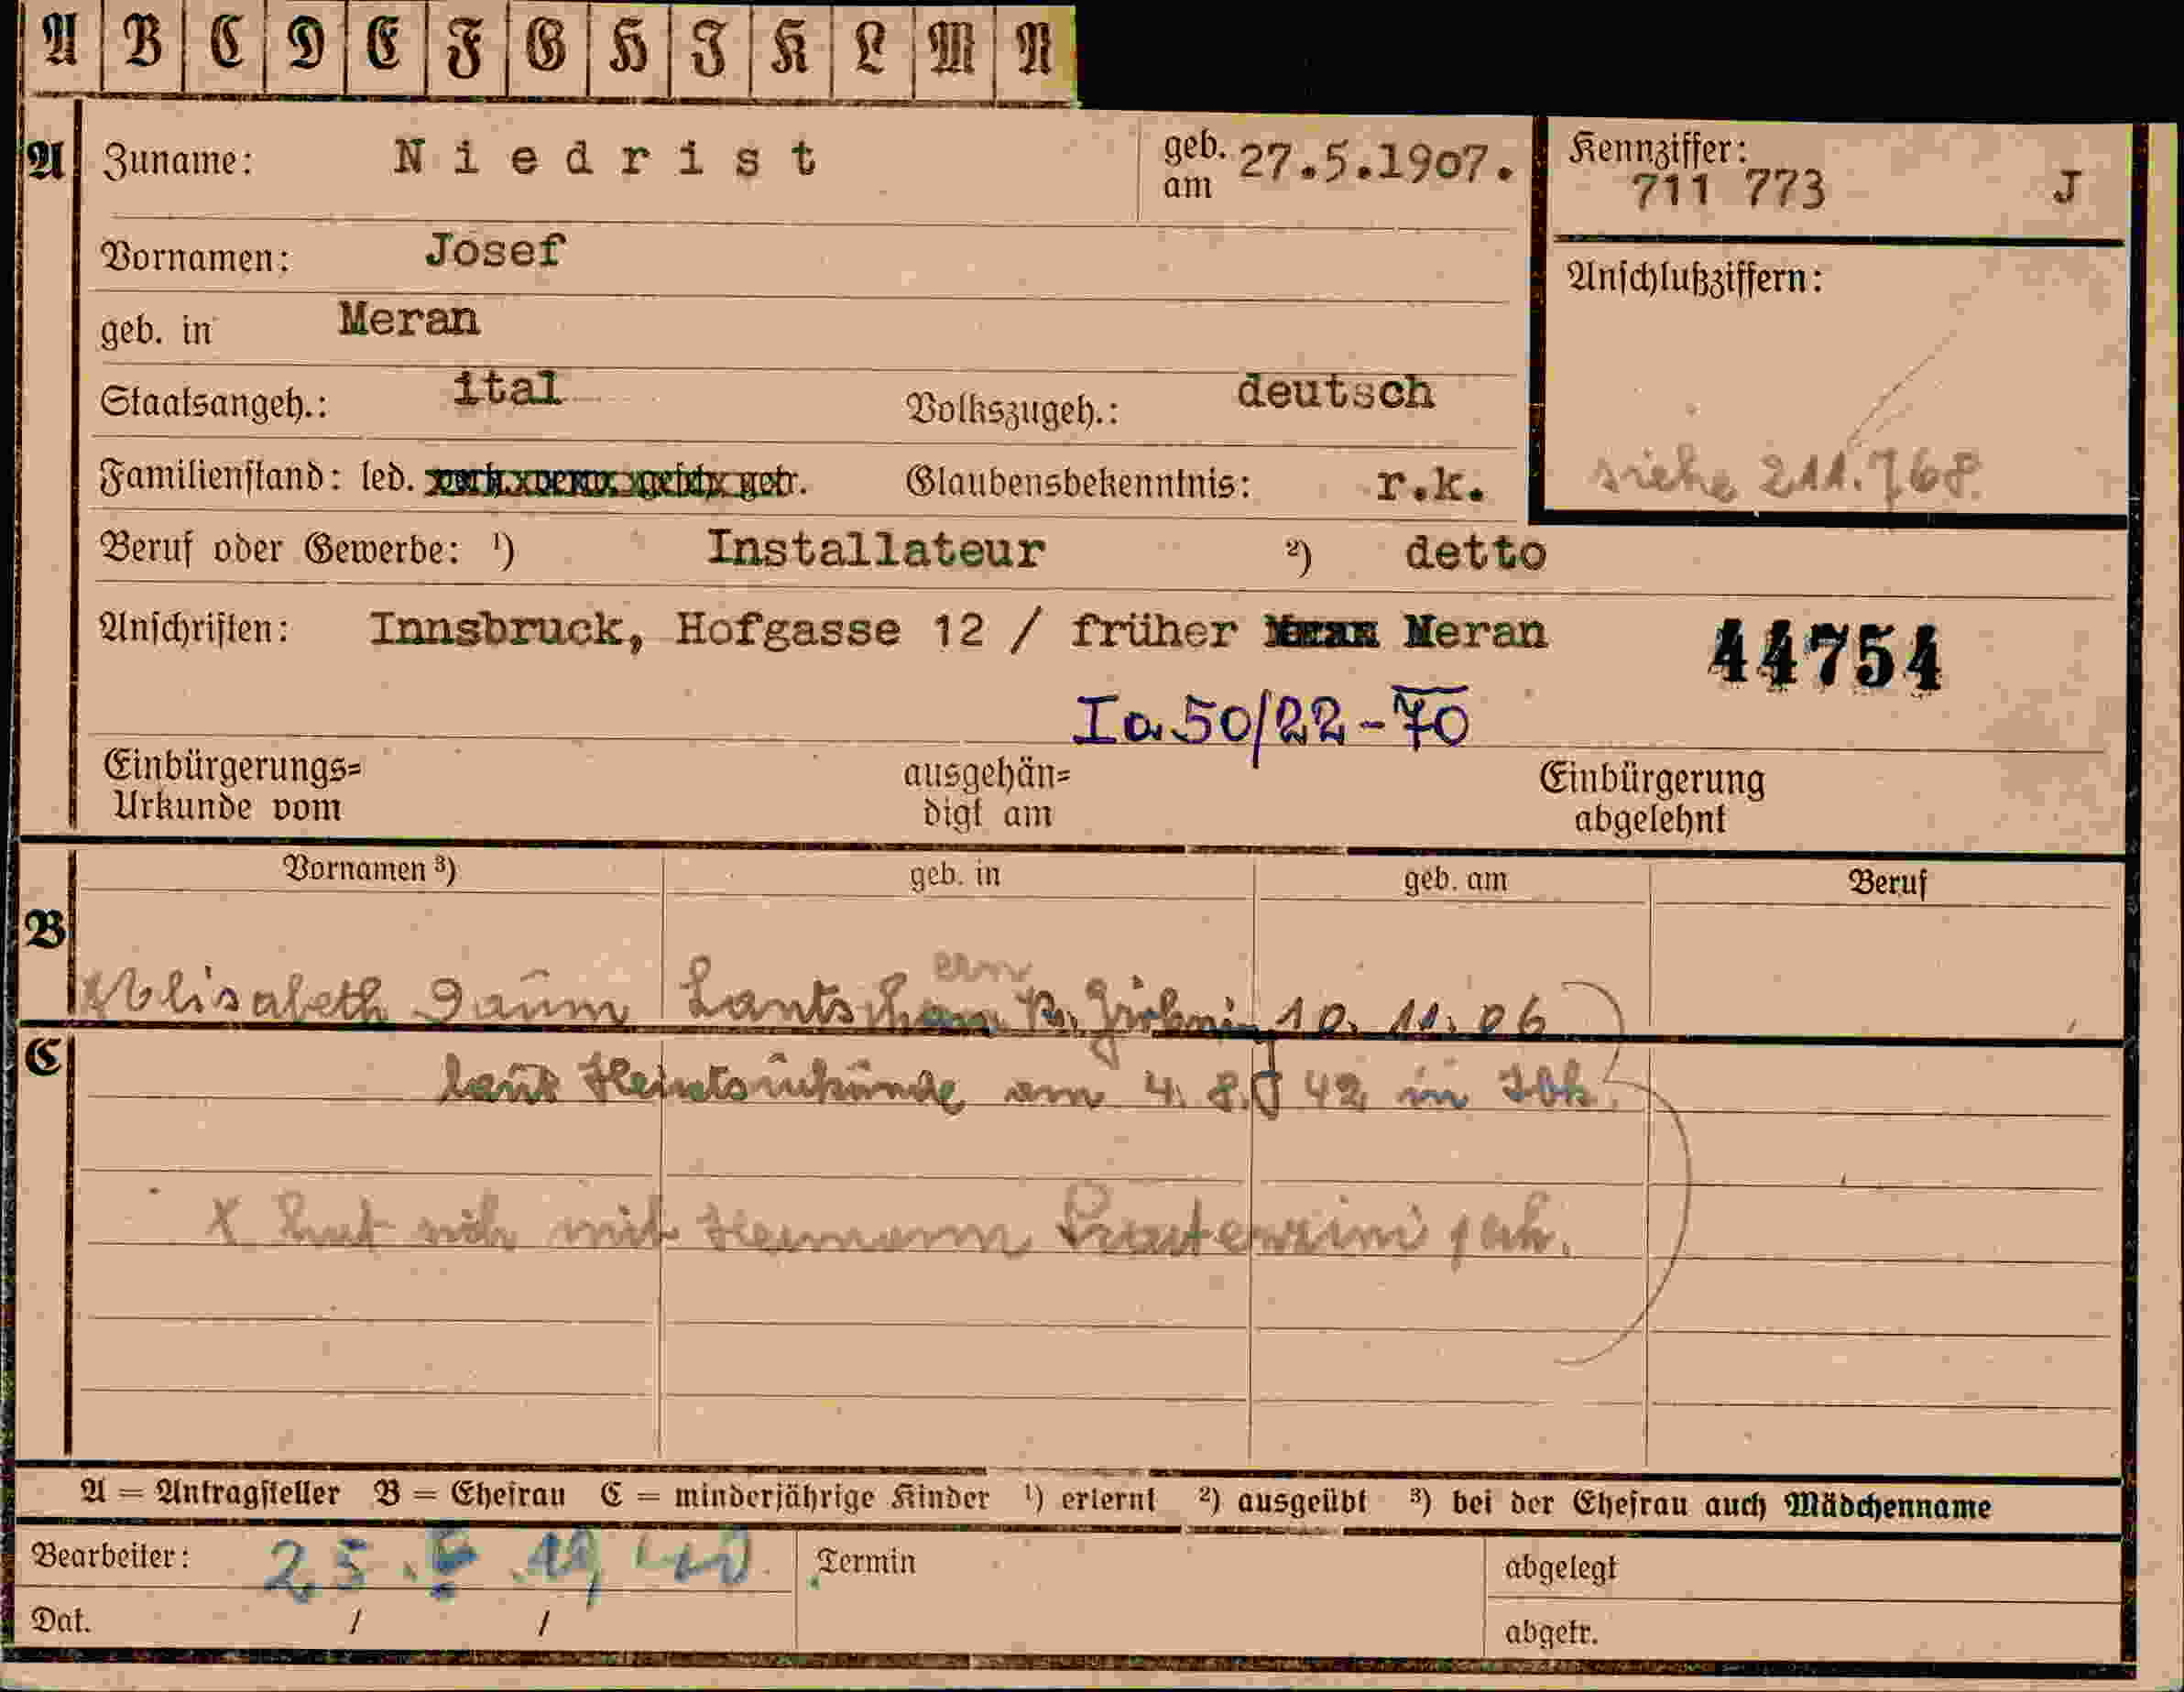 A B C D E F G H I K L M N
A Zuname: Niedrist geb. am 27.5.1907. Kennziffer: 711 773 J
Vornamen: Josef Anschlußziffern:
geb. in Meran
Staatsangeh.: ital Volkszugeh.: deutsch
Familienstand: led. gesch. getr. Glaubensbekenntnis: r.k. siehe 211.768
Beruf oder Gewerbe: 1) Installateur 2) detto
Anschriften: Innsbruck, Hofgasse 12 / früher Meran 44754
Ia 50/22-70
Einbürgerungs= ausgehän= Einbürgerung
Urkunde vom digt am abgelehnt
Vornamen 3) geb. in geb. am Beruf
ern
B Elisabeth Daum 10. 11. 06
C laut Heiratsurkunde am 4. 8. 42 in Ibk.
x hat sich mit Hermann
A = Antragsteller B = Ehefrau C = minderjährige Kinder 1) erlernt 2) ausgeübt 3) bei der Ehefrau auch Mädchenname
Bearbeiter: Termin abgelegt
Dat. / / abgetr.